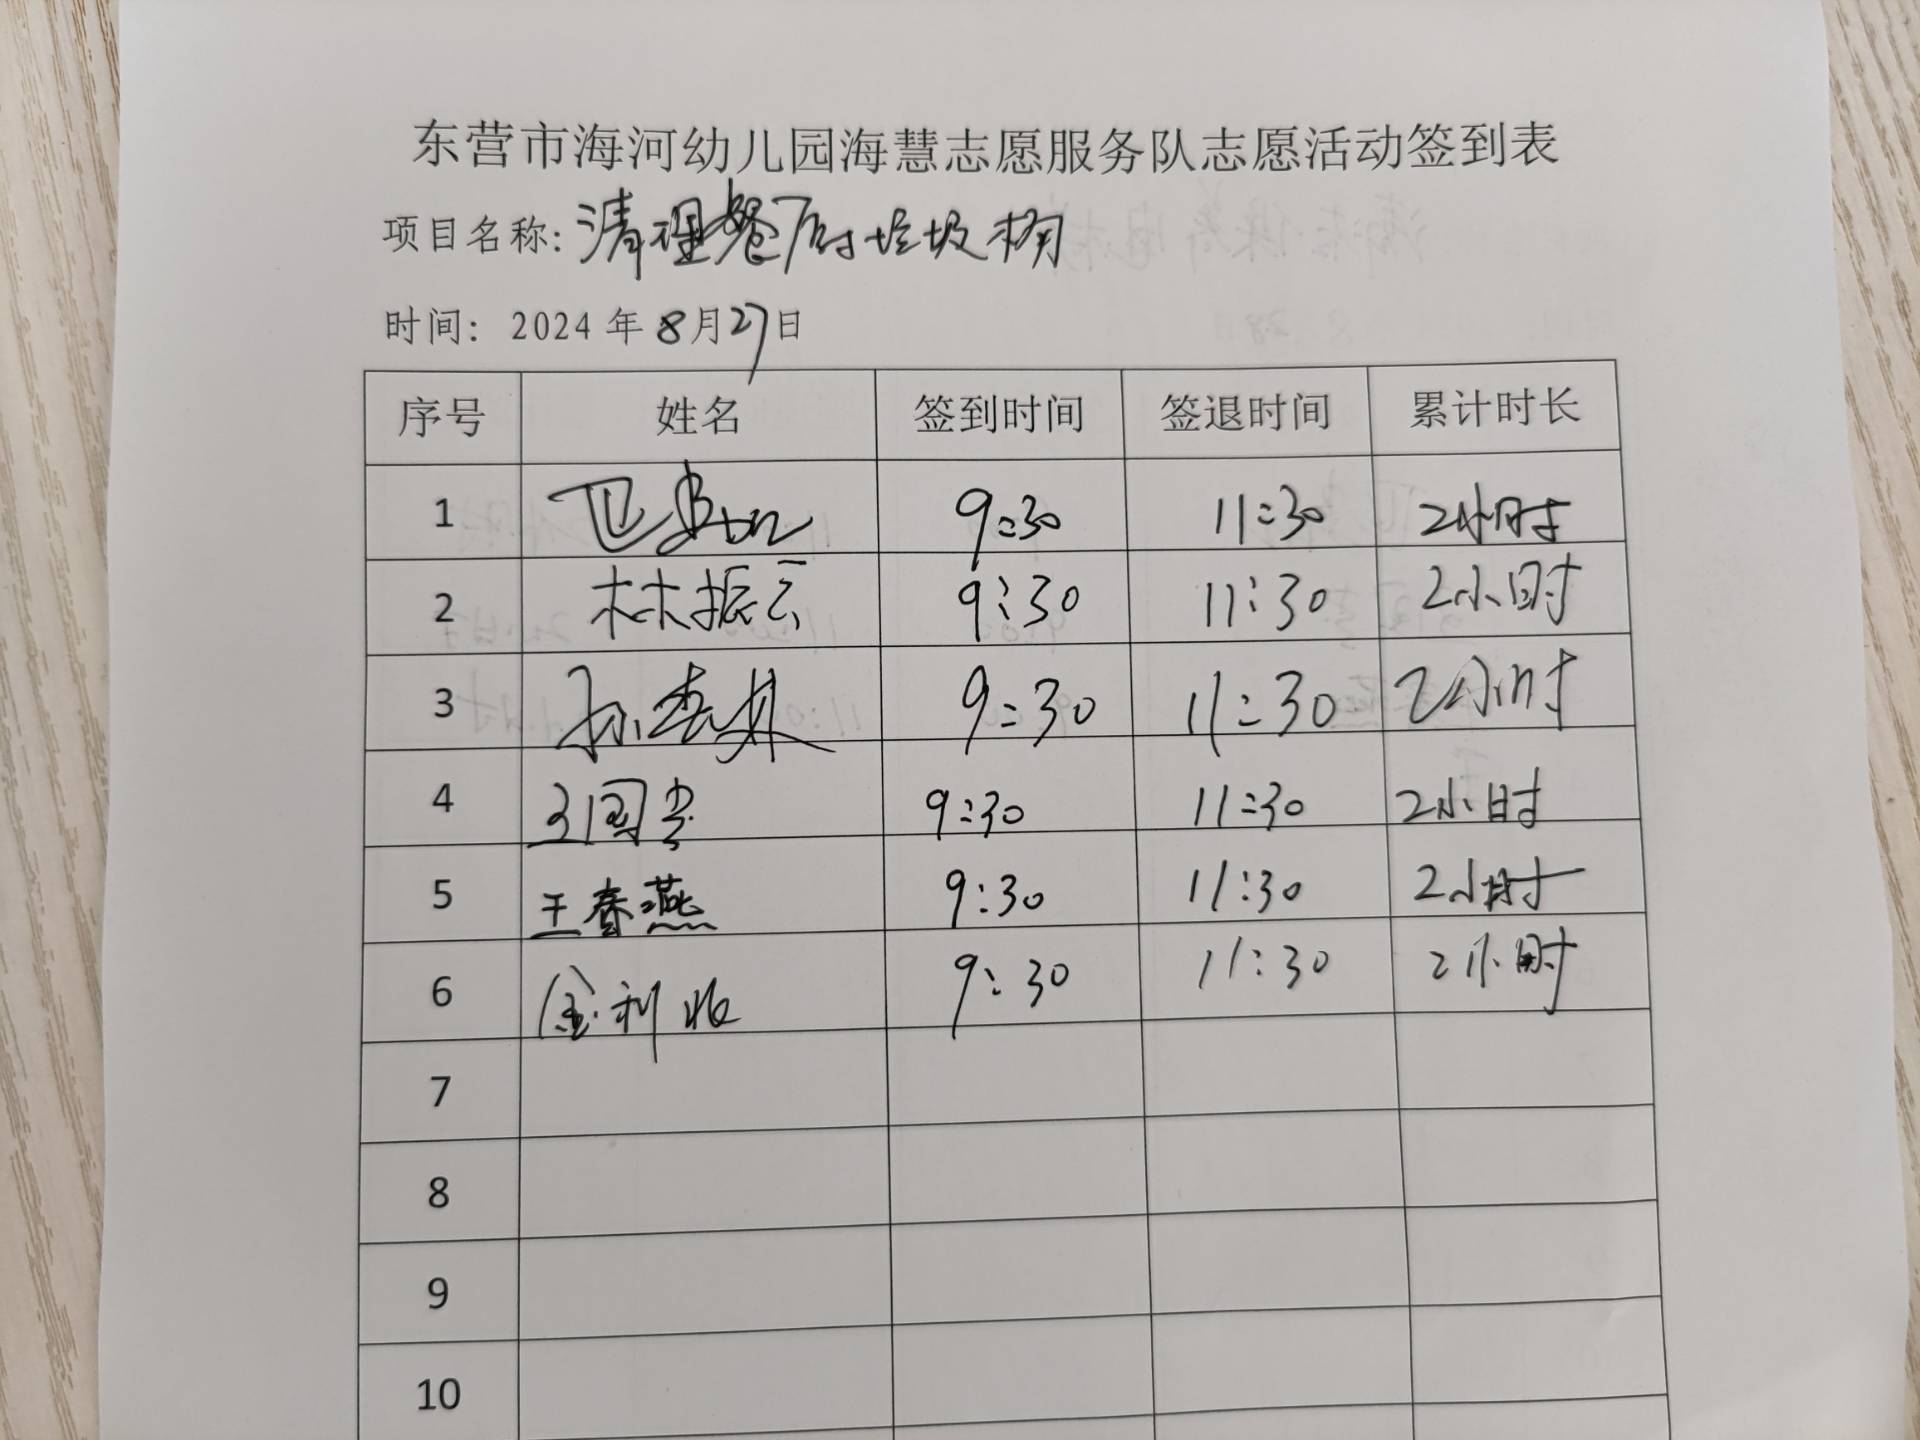 东营市海河幼儿园海慧志愿服务队志愿活动签到表
项目名称:清理餐厨垃圾桶
时间: 2024年8月27日
序号 姓名 签到时间 签退时间 累计时长
1 9:30 11:30 2小时
2 林振云 9:30 11:30 2小时
3 孙 9:30 11:30 2小时
4 王国 9:30 11:30 2小时
5 王春燕 9:30 11:30 2小时
6 金利 9:30 11:30 2小时
7
8
9
10